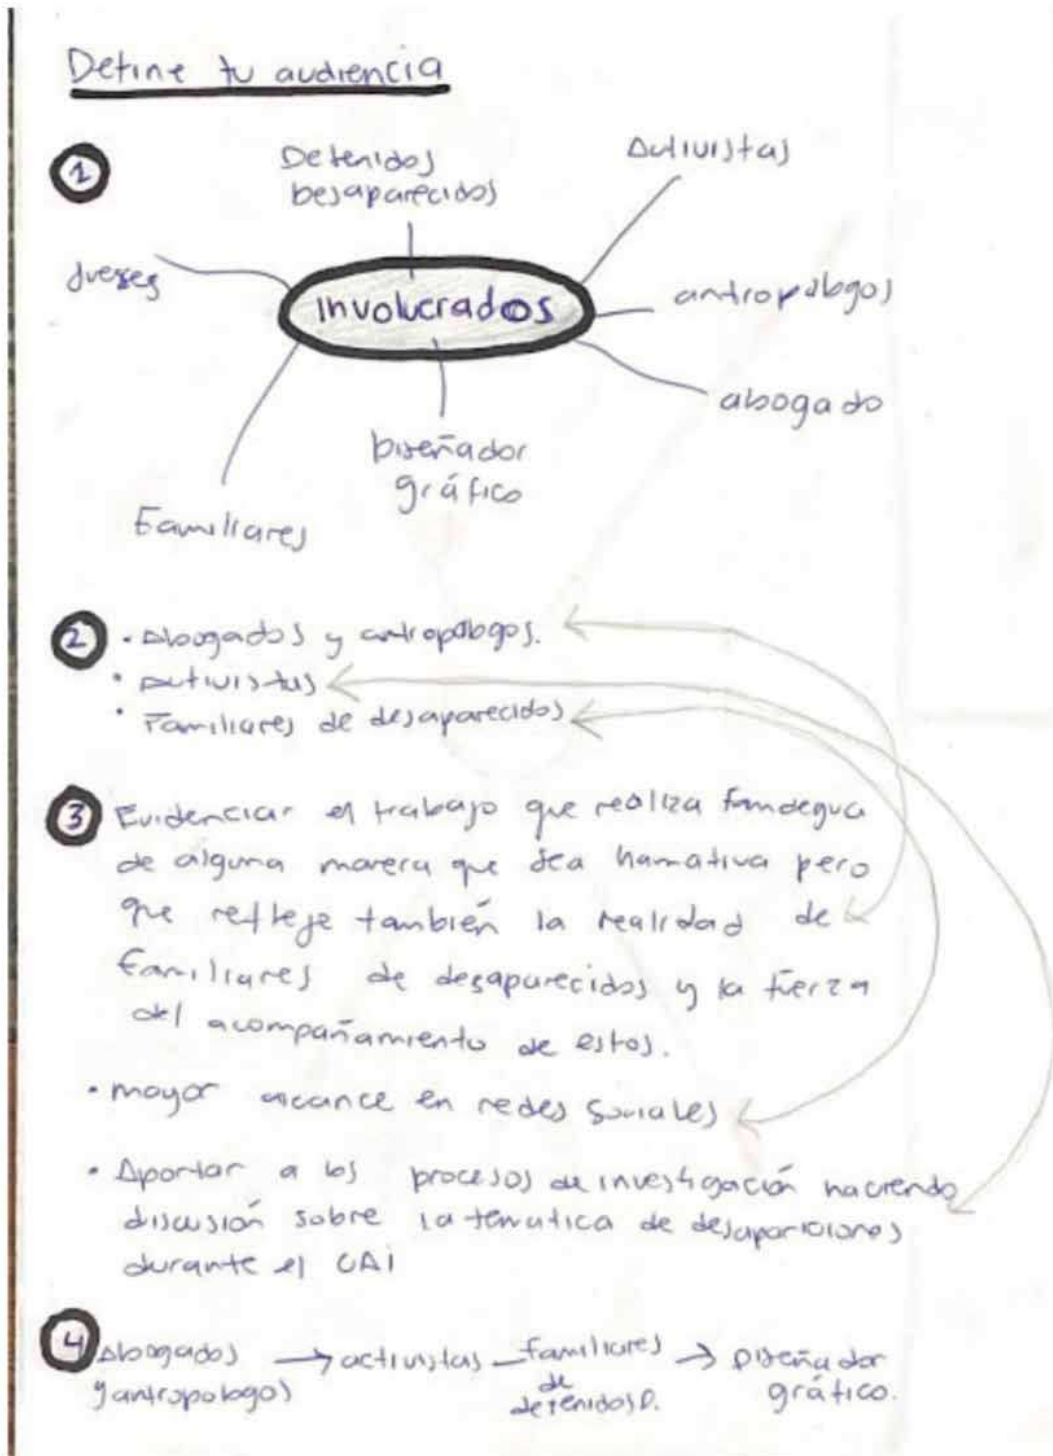 Define tu audiencia
1
Detenidos
Desaparecidos
Activistas
Jueses
Involucrados
antropólogos
abogado
Diseñador
gráfico
Familiares
2 · Abogados y antropólogos.
· Activistas
· Familiares de desaparecidos
3 Evidenciar el trabajo que realiza famdegua
de alguna manera que sea llamativa pero
que refleje también la realidad de
familiares de desaparecidos y la fuerza
del acompañamiento de estos.
· mayor alcance en redes sociales
· Aportar a los procesos de investigación haciendo
discusión sobre la tematica de desapariciones
durante el CAI
4 Abogados
y antropologos → activistas – familiares
de
detenidos D. → Diseñador
gráfico.